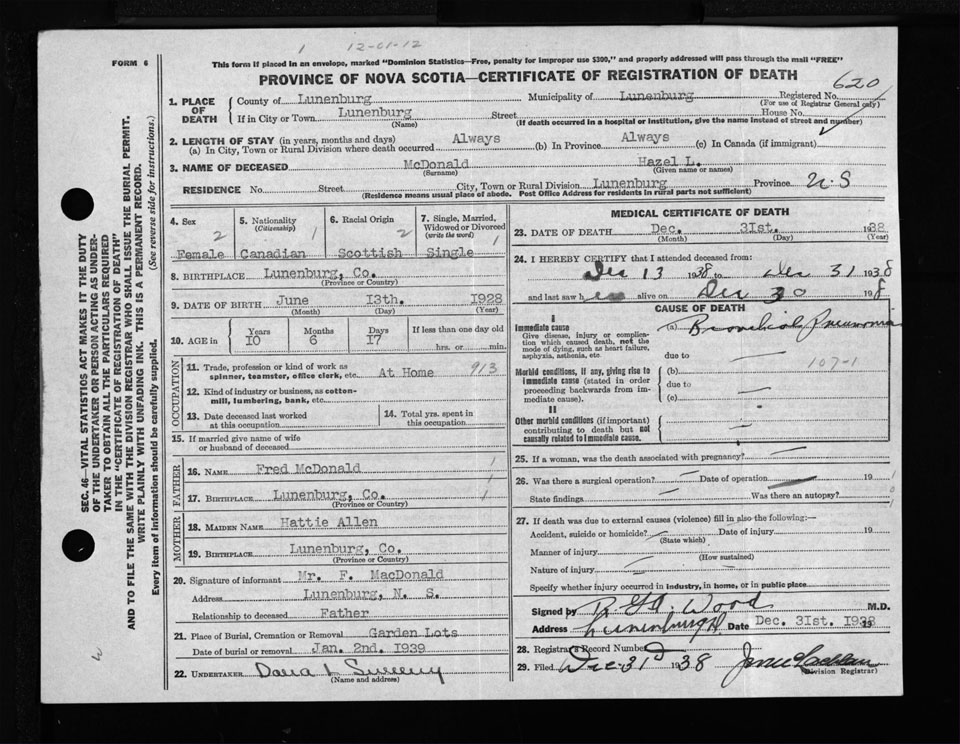 1 12-01-12
FORM 6
This form if placed in an envelope, marked "Dominion Statistics—Free, penalty for improper use $300," and properly addressed will pass through the mail "FREE"
PROVINCE OF NOVA SCOTIA—CERTIFICATE OF REGISTRATION OF DEATH
620
1. PLACE OF DEATH County of Lunenburg Municipality of Lunenburg Registered No.
(For use of Registrar General only)
If in City or Town Lunenburg Street House No.
(Name) (If death occurred in a hospital or institution, give the name instead of street and number)
2. LENGTH OF STAY (in years, months and days)
(a) In City, Town or Rural Division where death occurred Always (b) In Province Always (c) In Canada (if immigrant)
3. NAME OF DECEASED McDonald Hazel L.
(Surname) (Given name or names)
RESIDENCE No. Street City, Town or Rural Division Lunenburg Province N.S
(Residence means usual place of abode. Post Office Address for residents in rural parts not sufficient)
4. Sex 2 Female
5. Nationality (Citizenship) 1 Canadian
6. Racial Origin 2 Scottish
7. Single, Married, Widowed or Divorced (write the word) Single
8. BIRTHPLACE Lunenburg, Co.
(Province or Country)
9. DATE OF BIRTH June 13th. 1928
(Month) (Day) (Year)
10. AGE in Years Months Days If less than one day old
10 6 17 hrs. or min.
OCCUPATION
11. Trade, profession or kind of work as spinner, teamster, office clerk, etc. At Home 913
12. Kind of industry or business, as cotton-mill, lumbering, bank, etc.
13. Date deceased last worked at this occupation
14. Total yrs. spent in this occupation
15. If married give name of wife or husband of deceased
FATHER
16. NAME Fred McDonald 1
17. BIRTHPLACE Lunenburg, Co. 1
(Province or Country)
MOTHER
18. MAIDEN NAME Hattie Allen
19. BIRTHPLACE Lunenburg, Co.
(Province or Country)
20. Signature of informant Mr. F. MacDonald
Address Lunenburg, N. S.
Relationship to deceased Father
21. Place of Burial, Cremation or Removal Garden Lots
Date of burial or removal Jan. 2nd. 1939
22. UNDERTAKER
(Name and address)
MEDICAL CERTIFICATE OF DEATH
23. DATE OF DEATH Dec. 31st. 1938
(Month) (Day) (Year)
24. I HEREBY CERTIFY that I attended deceased from:
Dec 13 1938 to Dec 31 1938
and last saw her alive on Dec 30 1938
CAUSE OF DEATH
I
Immediate cause
Give disease, injury or complication which caused death, not the mode of dying, such as heart failure, asphyxia, asthenia, etc.
(a) Bronchial Pneumonia
due to
107-1
Morbid conditions, if any, giving rise to immediate cause (stated in order proceeding backwards from immediate cause).
(b)
due to
(c)
II
Other morbid conditions (if important) contributing to death but not causally related to immediate cause.
25. If a woman, was the death associated with pregnancy?
26. Was there a surgical operation? Date of operation 19
State findings Was there an autopsy?
27. If death was due to external causes (violence) fill in also the following:—
Accident, suicide or homicide? Date of injury 19
(State which)
Manner of injury
(How sustained)
Nature of injury
Specify whether injury occurred in industry, in home, or in public place
Signed by Wood M.D.
Address Lunenburg Date Dec. 31st. 1938
28. Registrar's Record Number
29. Filed Dec 31 1938
(Division Registrar)
SEC. 46—VITAL STATISTICS ACT MAKES IT THE DUTY
OF THE UNDERTAKER OR PERSON ACTING AS UNDER-
TAKER TO OBTAIN ALL THE PARTICULARS REQUIRED
IN THE "CERTIFICATE OF REGISTRATION OF DEATH"
AND TO FILE THE SAME WITH THE DIVISION REGISTRAR WHO SHALL ISSUE THE BURIAL PERMIT.
WRITE PLAINLY WITH UNFADING INK. THIS IS A PERMANENT RECORD.
Every item of information should be carefully supplied. (See reverse side for instructions.)